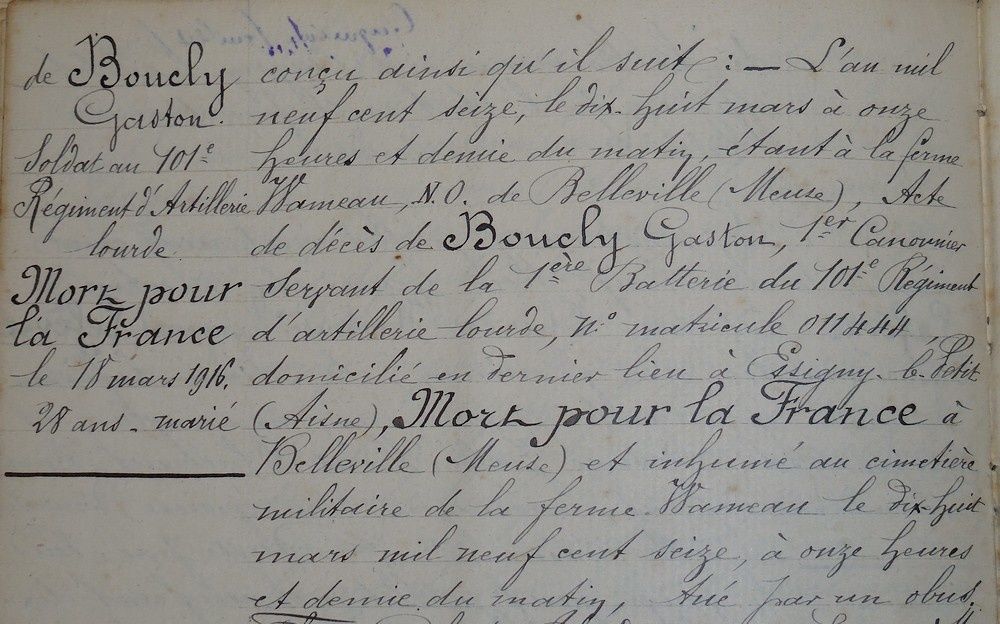 de Boucly
Gaston.
Soldat au 101e
Régiment d'Artillerie
lourde.
Mort pour
la France
le 18 mars 1916.
28 ans - marié
conçu ainsi qu'il suit : — L'an mil
neuf cent seize, le dix-huit mars à onze
heures et demie du matin, étant à la ferme
Wameau, N.O. de Belleville (Meuse), Acte
de décès de Boucly Gaston, 1er Canonnier
Servant de la 1ère Batterie du 101e Régiment
d'artillerie lourde, n° matricule 011444,
domicilié en dernier lieu à Essigny-le-Petit
(Aisne), Mort pour la France à
Belleville (Meuse) et inhumé au cimetière
militaire de la ferme Wameau le dix-huit
mars mil neuf cent seize, à onze heures
et demie du matin, tué par un obus.